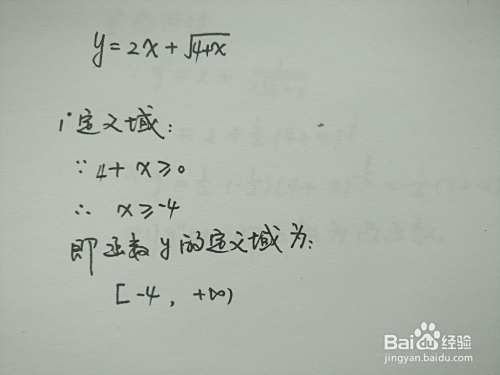 y=2x+√4+x
1°定义域:
∵ 4+x≥0
∴ x≥-4
即函数y的定义域为:
[-4, +∞)
Baidu经验
jingyan.baidu.com